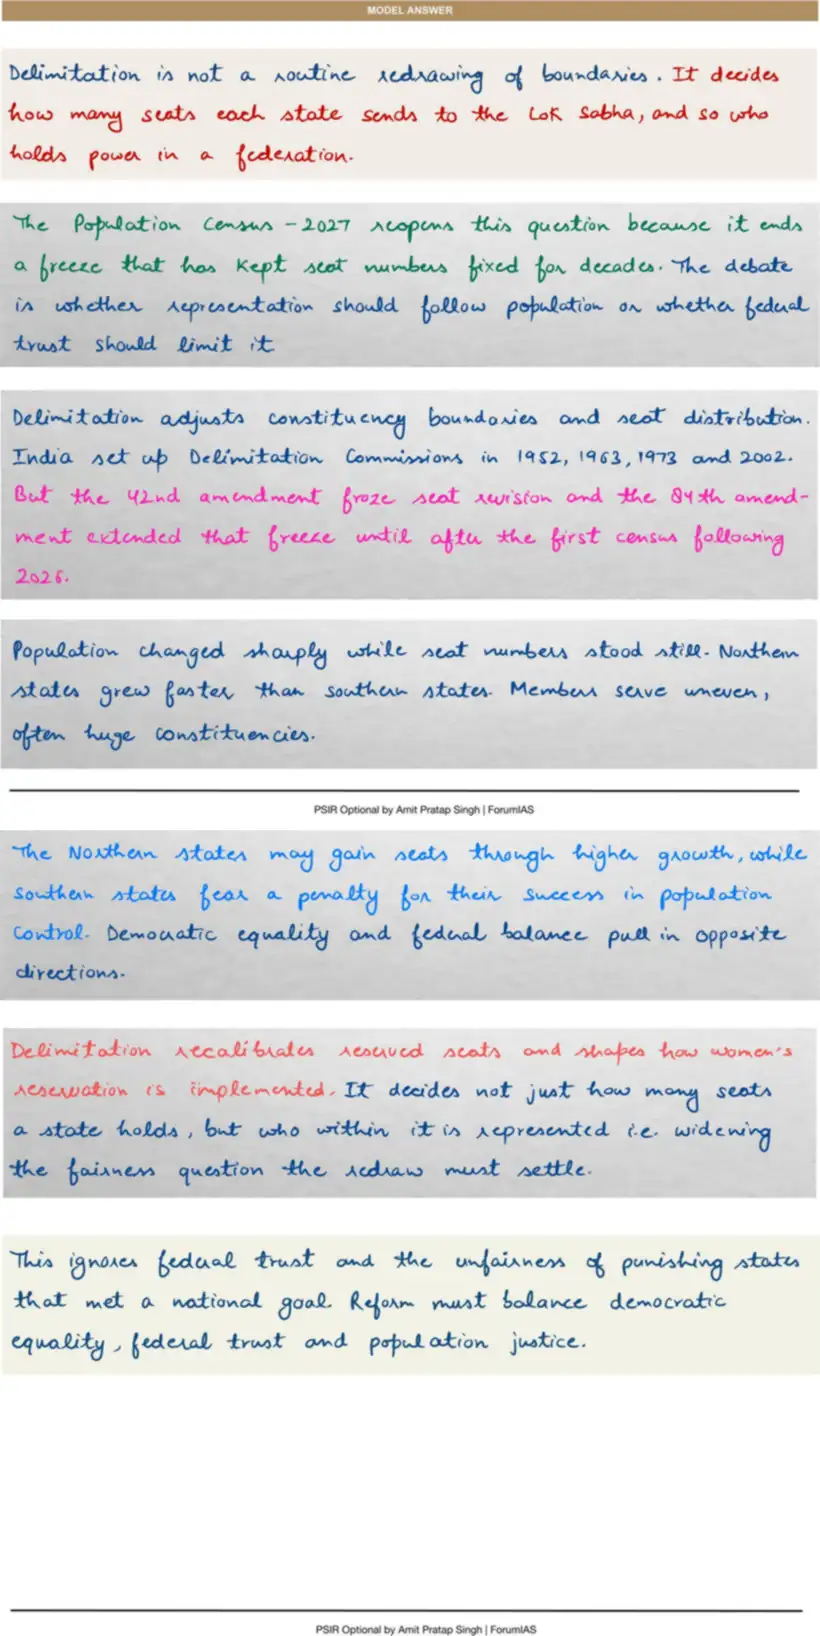 MODEL ANSWER
Delimitation is not a routine redrawing of boundaries. It decides
how many seats each state sends to the Lok Sabha, and so who
holds power in a federation.
The Population Census - 2027 reopens this question because it ends
a freeze that has kept seat numbers fixed for decades. The debate
is whether representation should follow population or whether federal
trust should limit it
Delimitation adjusts constituency boundaries and seat distribution.
India set up Delimitation Commissions in 1952, 1963, 1973 and 2002.
But the 42nd amendment froze seat revision and the 84th amend-
ment extended that freeze until after the first census following
2026.
Population changed sharply while seat numbers stood still. Northern
states grew faster than southern states. Members serve uneven,
often huge constituencies.
PSIR Optional by Amit Pratap Singh | ForumIAS
The Northern states may gain seats through higher growth, while
Southern states fear a penalty for their success in population
control. Democratic equality and federal balance pull in opposite
directions.
Delimitation recalibrates reserved seats and shapes how women's
reservation is implemented. It decides not just how many seats
a state holds, but who within it is represented i.e. widening
the fairness question the redraw must settle.
This ignores federal trust and the unfairness of punishing states
that met a national goal. Reform must balance democratic
equality, federal trust and population justice.
PSIR Optional by Amit Pratap Singh | ForumIAS